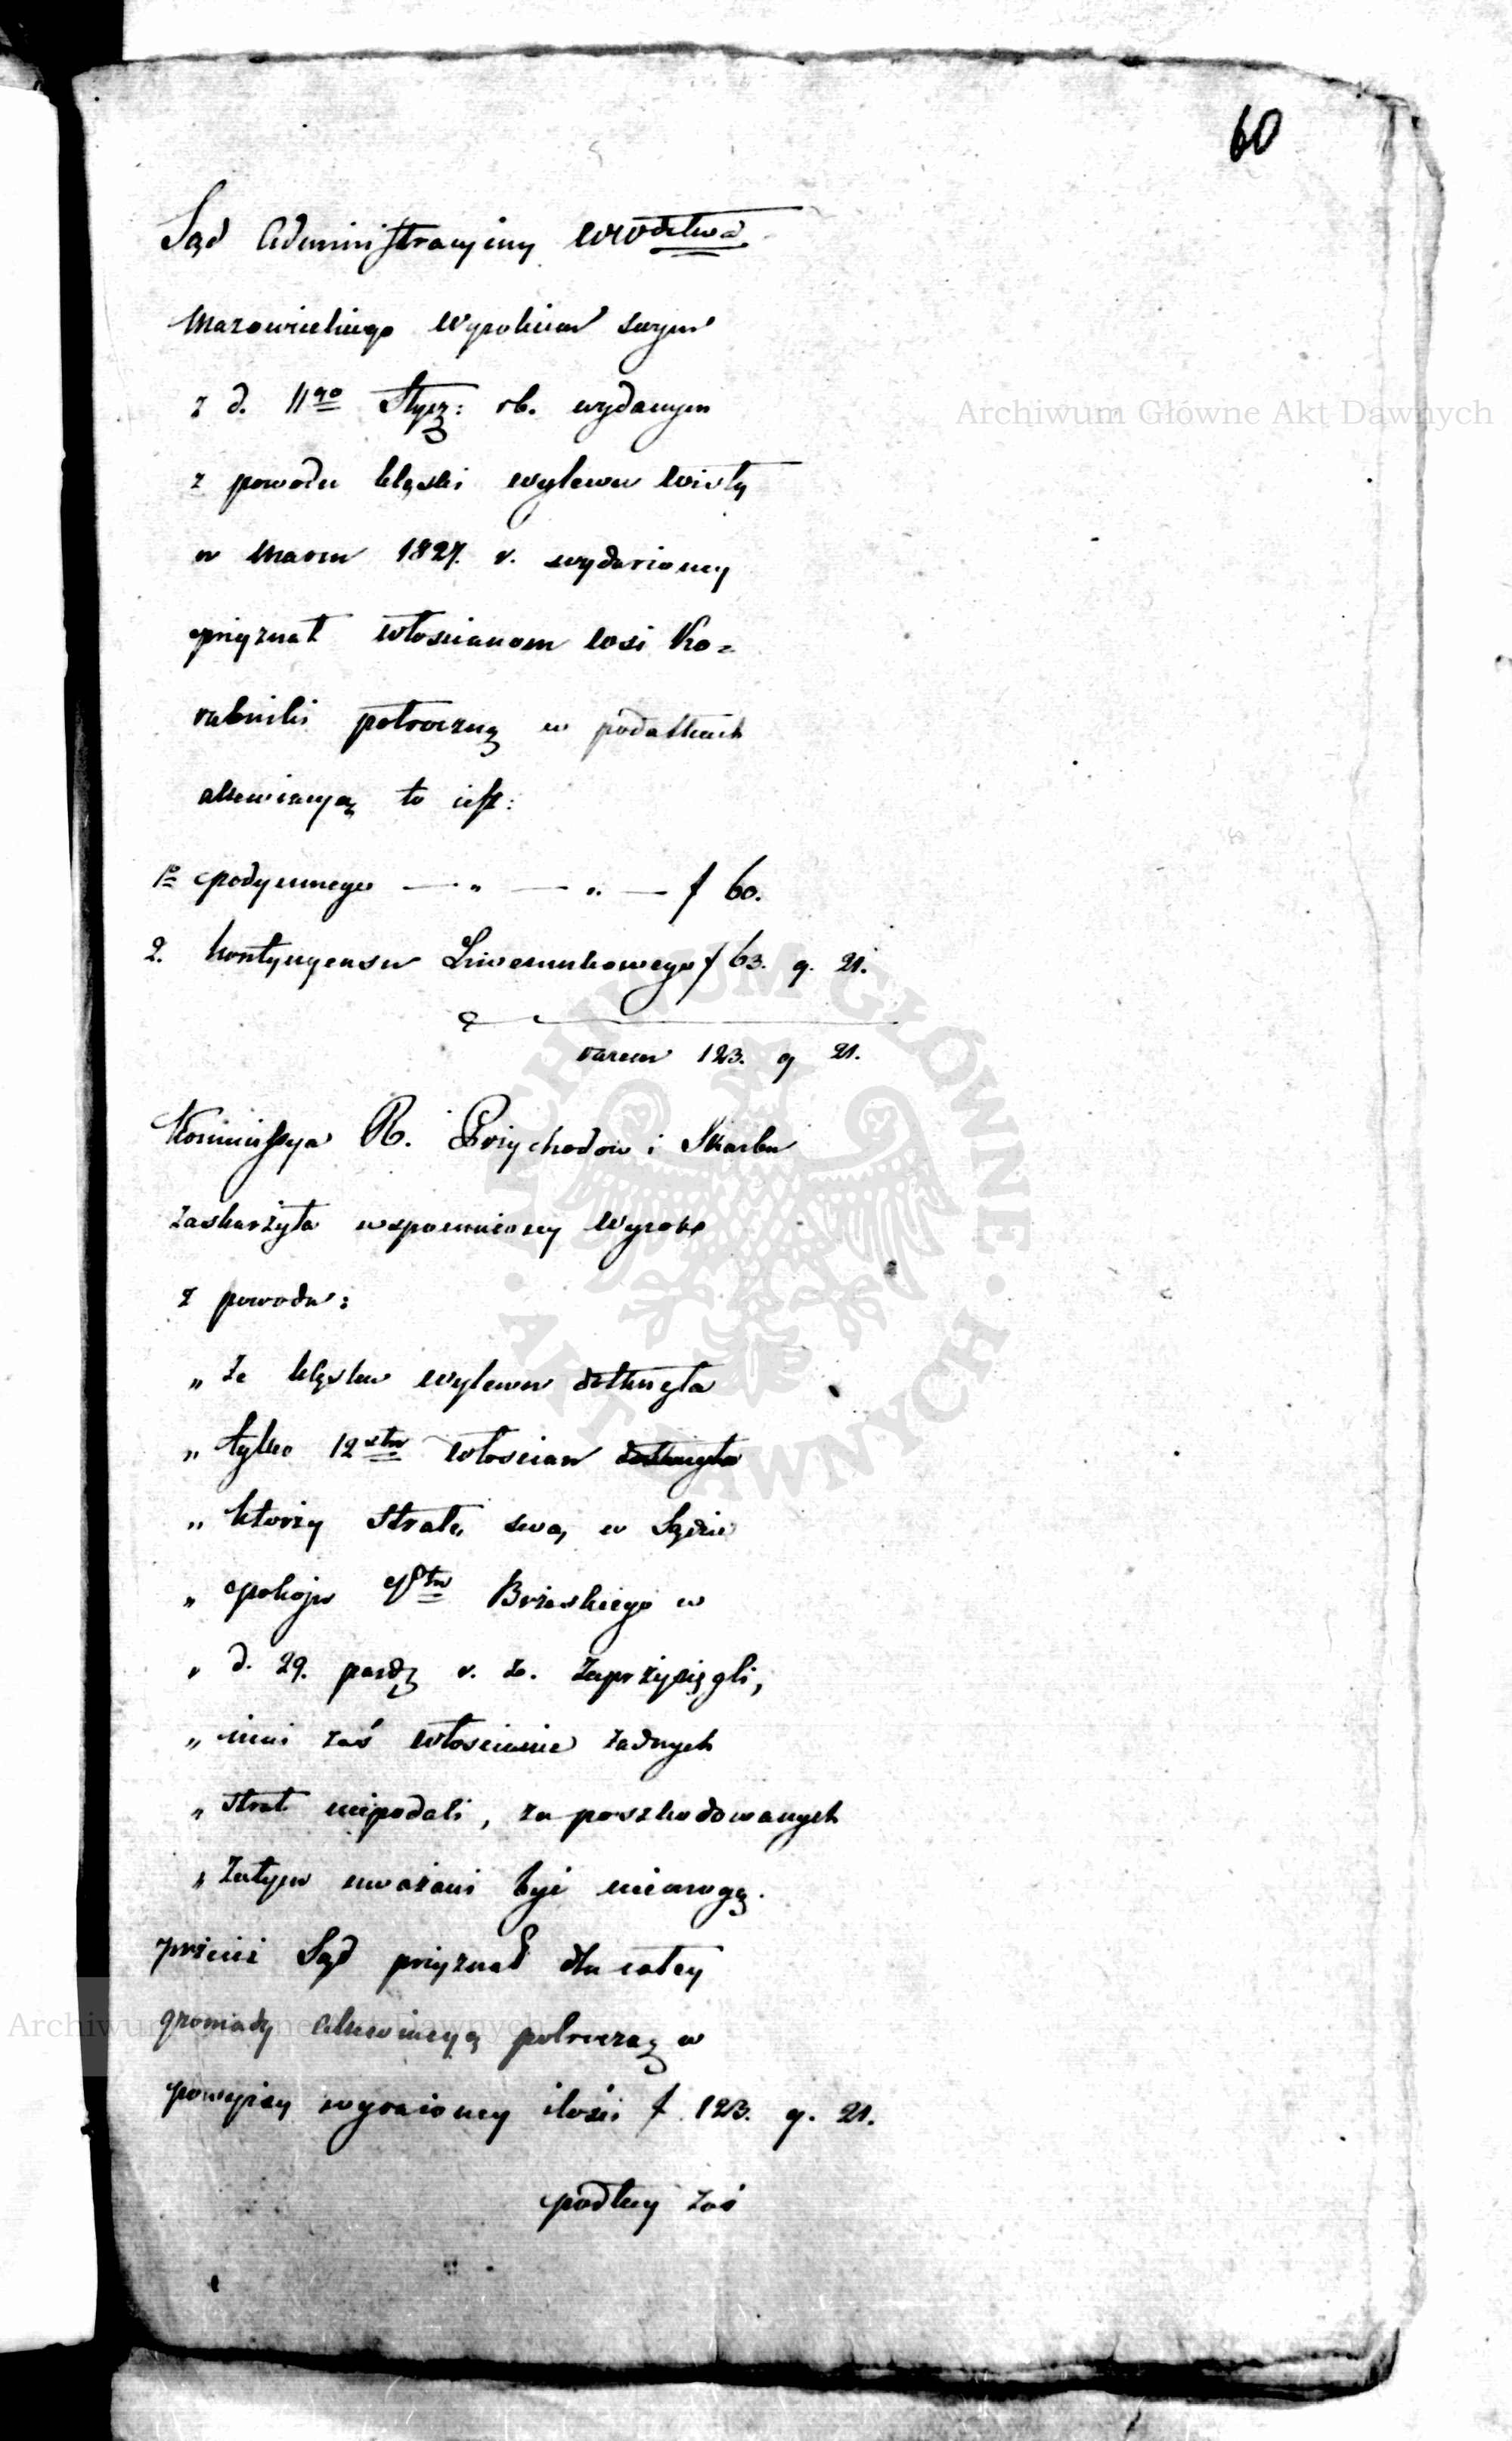 60
Sąd Administracyiny Wwodztwa
Mazowieckiego Wyrokiem swym
z d. 11go Stycz: rb. wydanym
z powodu klęski wylewu Wisły
w Marcu 1827. r. wydarzoney
przyznał Włoscianom Wsi Ko=
rabniki połroczną w podatkach
allewiacyą to iest:
1o podymnego — " — " — f 60.
2. kontyngensu Liwerunkowego f 63. g. 21.
razem 123. g 21.
Kommissya R. Przychodow i Skarbu
zaskarżyła wspomniony Wyrok
z powodu:
„ Że klęska wylewu dotknęła
„ tylko 12stu Włoscian dotknęła
„ ktorzy stratę swą w Sądzie
„ pokoju Pttu Brzeskiego w
„ d. 29. pazdz r. z. zaprzysięgli,
„ inni zaś Włoscianie żadnych
„ strat niepodali, za poszkodowanych
„ Zatym uważani być niemogą.
przecież Sąd przyznał dla całey
gromady allewiacyą połroczną w
powyższey wyrażoney ilości f. 123. g. 21.
podług zaś
Archiwum Główne Akt Dawnych
ARCHIWUM GŁÓWNE · AKT DAWNYCH ·
Archiwum Główne Akt Dawnych